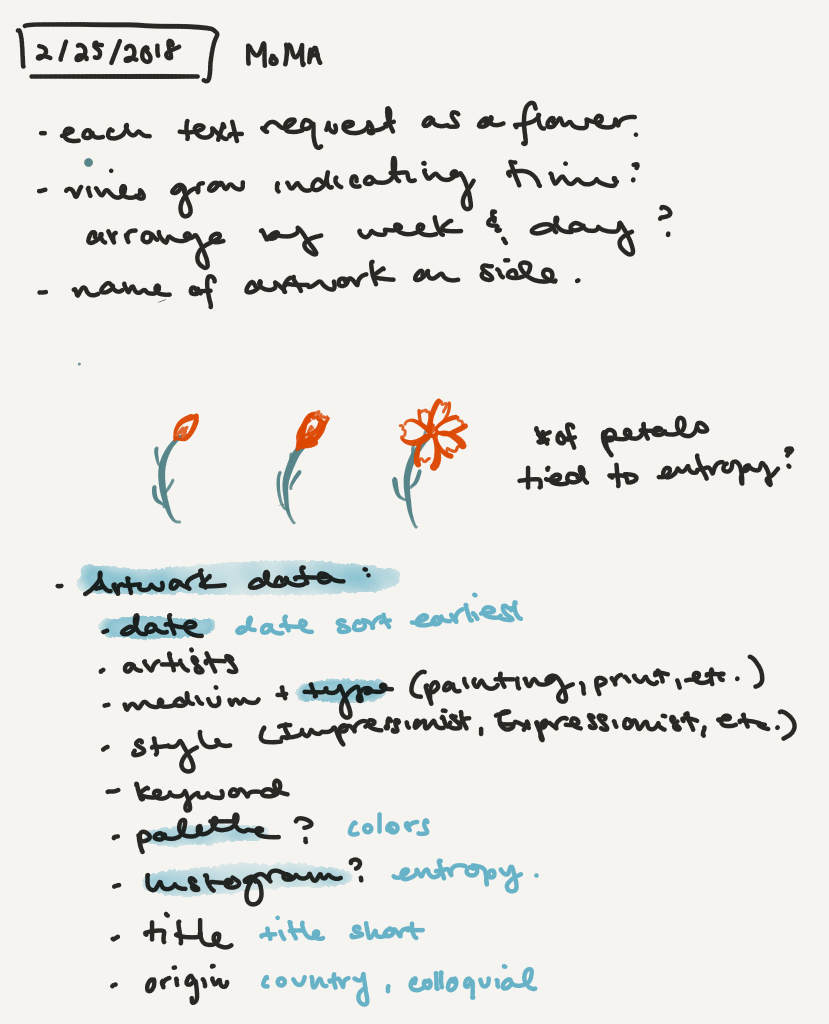 2/25/2018 MoMA
- each text request as a flower.
- vines grow indicating time:
arrange by week & day?
- name of artwork on side.
# of petals
tied to entropy?
- Artwork data:
- date date sort earliest
- artists
- medium + type (painting, print, etc.)
- style (Impressionist, Expressionist, etc.)
- keyword
- palette? colors
- histogram? entropy.
- title title short
- origin country, colloquial